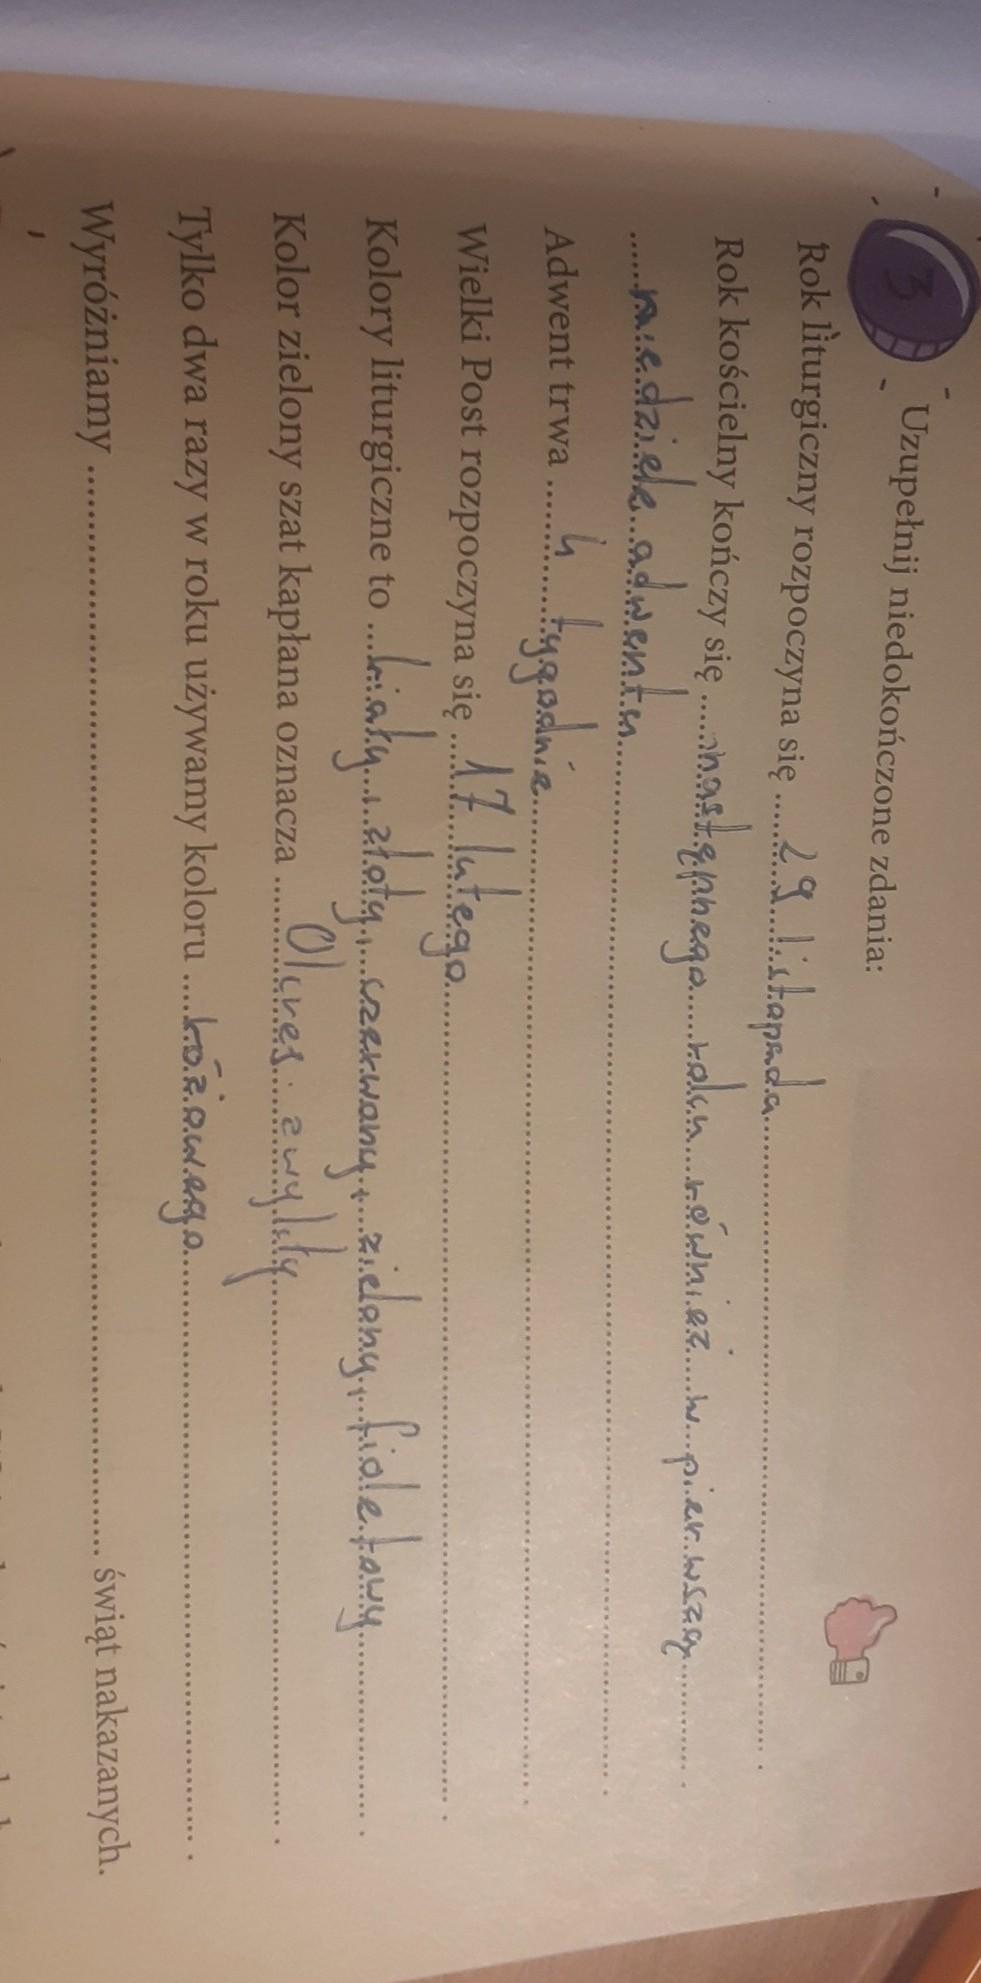 3
Uzupełnij niedokończone zdania:
Rok liturgiczny rozpoczyna się ......29 listopada......
Rok kościelny kończy się ......następnego roku również w pierwszą......
......niedziele adwentu......
Adwent trwa ......4 tygodnie......
Wielki Post rozpoczyna się ......17 lutego......
Kolory liturgiczne to ...biały, złoty, czerwony, zielony, fioletowy......
Kolor zielony szat kapłana oznacza ......Okres zwykły......
Tylko dwa razy w roku używamy koloru ......różowego......
Wyróżniamy ...... świąt nakazanych.